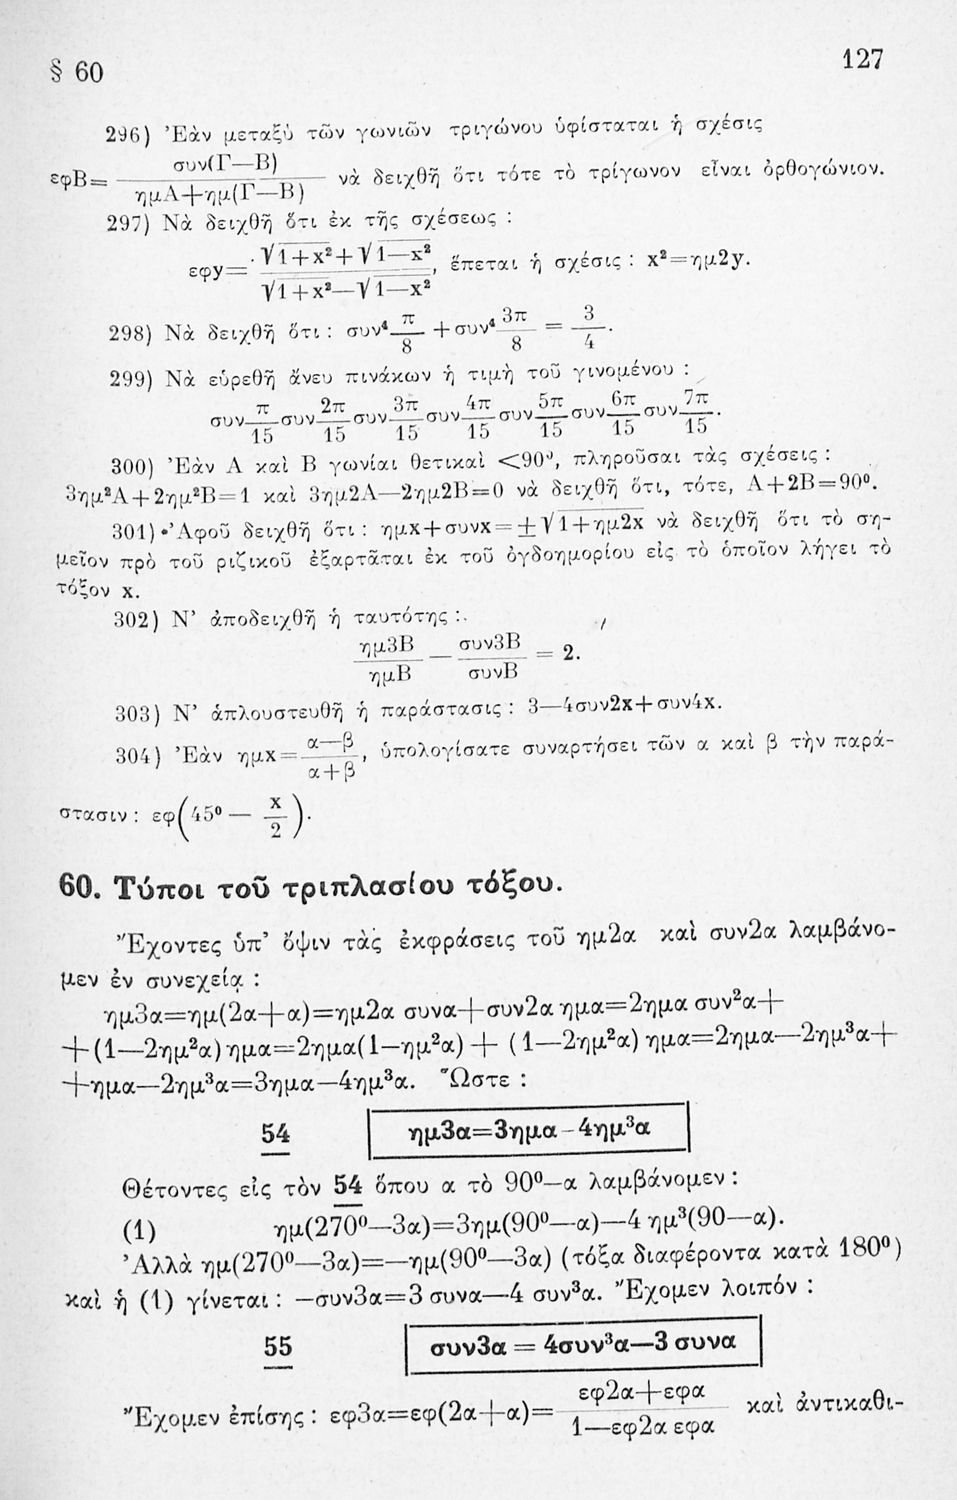 § 60 127
296) Ἐὰν μεταξὺ τῶν γωνιῶν τριγώνου ὑφίσταται ἡ σχέσις
εφΒ= συν(Γ—Β) / ημΑ+ημ(Γ—Β) νὰ δειχθῇ ὅτι τότε τὸ τρίγωνον εἶναι ὀρθογώνιον.
297) Νὰ δειχθῇ ὅτι ἐκ τῆς σχέσεως :
εφy= (√1+x²+√1—x²) / (√1+x²—√1—x²), ἕπεται ἡ σχέσις : x²=ημ2y.
298) Νὰ δειχθῇ ὅτι : συν⁴ π/8 +συν⁴ 3π/8 = 3/4.
299) Νὰ εὑρεθῇ ἄνευ πινάκων ἡ τιμὴ τοῦ γινομένου :
συν π/15 συν 2π/15 συν 3π/15 συν 4π/15 συν 5π/15 συν 6π/15 συν 7π/15.
300) Ἐὰν Α καὶ Β γωνίαι θετικαὶ <90⁰, πληροῦσαι τὰς σχέσεις :
3ημ²Α+2ημ²Β=1 καὶ 3ημ2Α—2ημ2Β=0 νὰ δειχθῇ ὅτι, τότε, Α+2Β=90⁰.
301) Ἀφοῦ δειχθῇ ὅτι : ημx+συνx=±√1+ημ2x νὰ δειχθῇ ὅτι τὸ ση-
μεῖον πρὸ τοῦ ριζικοῦ ἐξαρτᾶται ἐκ τοῦ ὀγδοημορίου εἰς τὸ ὁποῖον λήγει τὸ
τόξον x.
302) Ν' ἀποδειχθῇ ἡ ταυτότης :
ημ3Β/ημΒ — συν3Β/συνΒ = 2.
303) Ν' ἁπλουστευθῇ ἡ παράστασις : 3—4συν2x+συν4x.
304) Ἐὰν ημx= α—β/α+β, ὑπολογίσατε συναρτήσει τῶν α καὶ β τὴν παρά-
στασιν : εφ(45⁰ — x/2).
60. Τύποι τοῦ τριπλασίου τόξου.
Ἔχοντες ὑπ' ὄψιν τὰς ἐκφράσεις τοῦ ημ2α καὶ συν2α λαμβάνο-
μεν ἐν συνεχείᾳ :
ημ3α=ημ(2α+α)=ημ2α συνα+συν2α ημα=2ημα συν²α+
+(1—2ημ²α)ημα=2ημα(1—ημ²α) + (1—2ημ²α) ημα=2ημα—2ημ³α+
+ημα—2ημ³α=3ημα—4ημ³α. Ὥστε :
54 ημ3α=3ημα-4ημ³α
Θέτοντες εἰς τὸν 54 ὅπου α τὸ 90⁰—α λαμβάνομεν :
(1) ημ(270⁰—3α)=3ημ(90⁰—α)—4 ημ³(90—α).
Ἀλλὰ ημ(270⁰—3α)=—ημ(90⁰—3α) (τόξα διαφέροντα κατὰ 180⁰)
καὶ ἡ (1) γίνεται : —συν3α=3 συνα—4 συν³α. Ἔχομεν λοιπόν :
55 συν3α = 4συν³α—3 συνα
Ἔχομεν ἐπίσης : εφ3α=εφ(2α+α)= εφ2α+εφα / 1—εφ2α εφα καὶ ἀντικαθι-